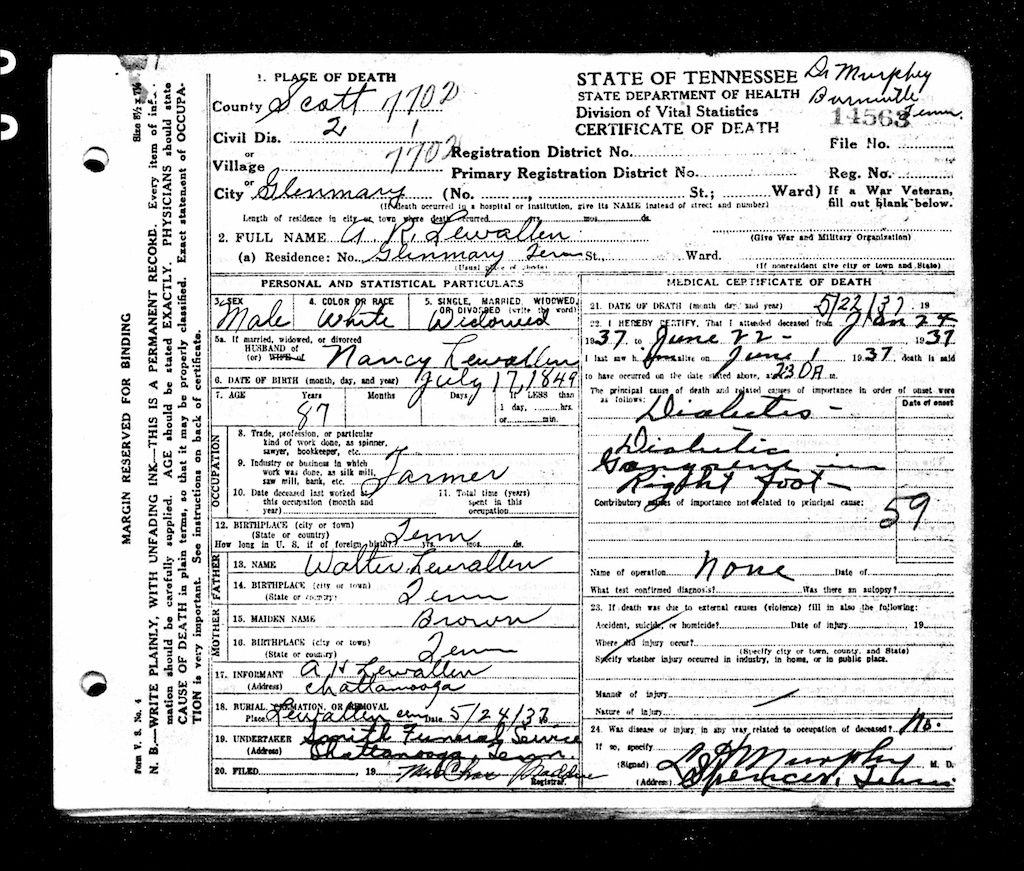 Size 8½ x 7½
MARGIN RESERVED FOR BINDING
N. B.—WRITE PLAINLY, WITH UNFADING INK—THIS IS A PERMANENT RECORD. Every item of infor-
mation should be carefully supplied. AGE should be stated EXACTLY. PHYSICIANS should state
CAUSE OF DEATH in plain terms, so that it may be properly classified. Exact statement of OCCUPA-
TION is very important. See instructions on back of certificate.
Form V. S. No. 4
1. PLACE OF DEATH
County Scott 7702
Civil Dis. 2 1
Village 7702
or
City Glenmary (No. St.; Ward)
(If death occurred in a hospital or institution, give its NAME instead of street and number)
STATE OF TENNESSEE
STATE DEPARTMENT OF HEALTH
Division of Vital Statistics
CERTIFICATE OF DEATH
Registration District No.
Primary Registration District No.
Dr Murphey
Tenn.
14563
File No.
Reg. No.
If a War Veteran,
fill out blank below.
Length of residence in city or town where death occurred yrs. mos. ds.
2. FULL NAME A. R. Lewallen
(Give War and Military Organization)
(a) Residence: No. Glenmary Tenn St., Ward.
(Usual place of abode) (If nonresident give city or town and State)
PERSONAL AND STATISTICAL PARTICULARS
3. SEX Male
4. COLOR OR RACE White
5. SINGLE, MARRIED, WIDOWED, OR DIVORCED (write the word) Widowed
5a. If married, widowed, or divorced
HUSBAND of
(or) WIFE of Nancy Lewallen
6. DATE OF BIRTH (month, day, and year) July 17, 1849
7. AGE Years 87 Months Days If LESS than
1 day, hrs.
or min.
OCCUPATION
8. Trade, profession, or particular
kind of work done, as spinner,
sawyer, bookkeeper, etc.
9. Industry or business in which
work was done, as silk mill,
saw mill, bank, etc. Farmer
10. Date deceased last worked at
this occupation (month and
year)
11. Total time (years)
spent in this
occupation
12. BIRTHPLACE (city or town)
(State or country) Tenn
How long in U. S. if of foreign birth? yrs. mos. ds.
FATHER
13. NAME Walter Lewallen
14. BIRTHPLACE (city or town)
(State or country) Tenn
MOTHER
15. MAIDEN NAME Brown
16. BIRTHPLACE (city or town)
(State or country) Tenn
17. INFORMANT A H Lewallen
(Address) Chattanooga
18. BURIAL, CREMATION, OR REMOVAL
Place Lewallen cem Date 5/24/37
19. UNDERTAKER Smith Funeral Service
(Address) Chattanooga Tenn.
20. FILED , 19 Mrs Chas
Registrar.
MEDICAL CERTIFICATE OF DEATH
21. DATE OF DEATH (month day and year) 5/22/37 , 19
22. I HEREBY CERTIFY, That I attended deceased from Jan 24
1937 to June 22 - 1937
I last saw h im alive on June 1 1937, death is said
to have occurred on the date stated above, at 230A m.
The principal cause of death and related causes of importance in order of onset were
as follows:
Date of onset
Diabetis -
Diabetic
Gangrene in
Right foot -
Contributory causes of importance not related to principal cause:
59
Name of operation None Date of
What test confirmed diagnosis? Was there an autopsy?
23. If death was due to external causes (violence) fill in also the following:
Accident, suicide, or homicide? Date of injury 19
Where did injury occur?
(Specify city or town, county, and State)
Specify whether injury occurred in industry, in home, or in public place.
Manner of injury
Nature of injury
24. Was disease or injury in any way related to occupation of deceased? No.
If so, specify
(Signed) Murphy M. D.
(Address) Spencer, Tenn